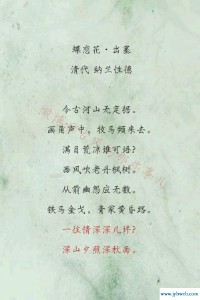 蝶恋花·出塞
清代 纳兰性德
今古河山无定据。
画角声中，牧马频来去。
满目荒凉谁可语？
西风吹老丹枫树。
从前幽怨应无数。
铁马金戈，青冢黄昏路。
一往情深深几许？
深山夕照深秋雨。